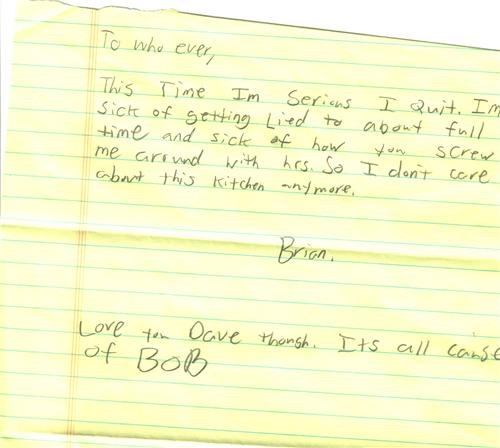 To who ever,
This Time Im Serious I Quit. Im
Sick of getting Lied to about full
time and sick of how you screw
me around with hrs. So I don't care
about this kitchen anymore.
Brian.
Love you Dave though. Its all cause
of BOB